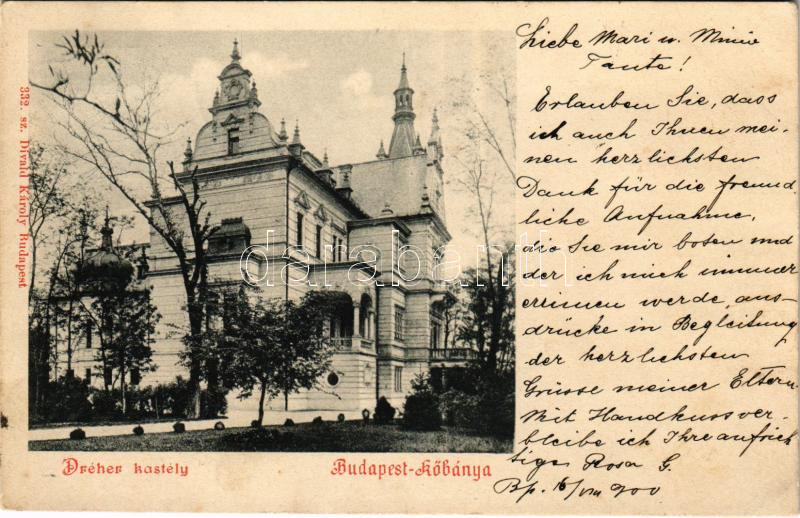 Liebe Mari u. Minie
Tante!
Erlauben Sie, dass
ich auch Ihnen mei-
nen herzlichsten
Dank für die freund-
liche Aufnahme,
die Sie mir boten und
der ich mich immer
erinnern werde, aus-
drücke in Begleitung
der herzlichsten
Grüsse meiner Eltern
Mit Handkuss ver-
bleibe ich Ihre aufrich-
tige Rosa G.
Bp. 16/VIII 900
332. sz. Divald Károly Budapest
darabanth
Dréher kastély
Budapest-Kőbánya